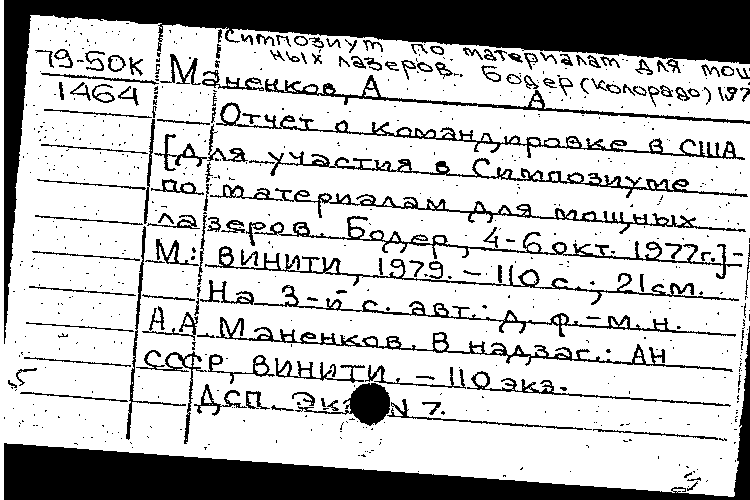 Симпозиум по материалам для мощ
ных лазеров. Бодер (Колорадо) 197
79-50К Маненков, А А
1464 Отчет о командировке в США
[для участия в Симпозиуме
по материалам для мощных
лазеров. Бодер, 4-6 окт. 1977г.] -
М.: ВИНИТИ, 1979. - 110 с.; 21 см.
На 3-й с. авт.: д. ф.-м. н.
А.А. Маненков. В надзаг.: АН
СССР, ВИНИТИ. - 110 экз.
ДСП. Экз N 7.